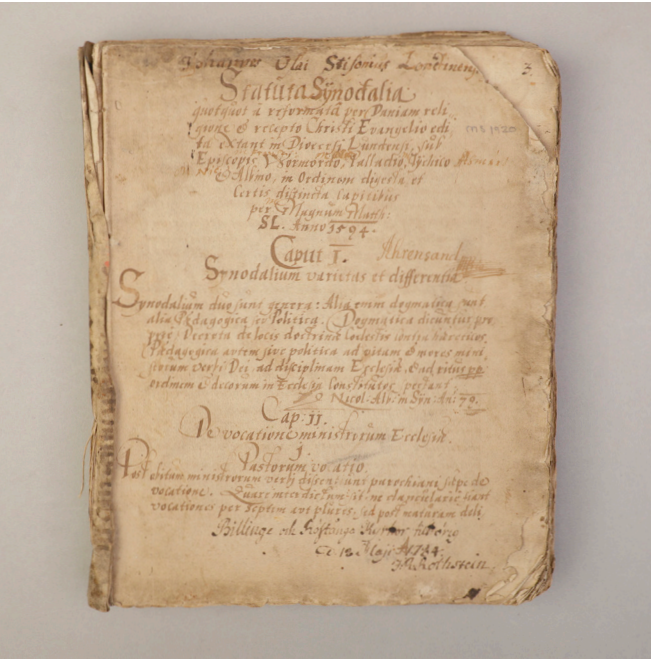 Johannes Olai Stisonius Londinens
3.
Statuta Synodalia
quotquot à reformatâ per Daniam reli
gione & recepto Christi Evangelio edi
ta extant in Dioecesi Lundensi, sub
Episcopis Wormordo, Palladio, Tychico
& Alimo, in Ordinem digesta et
certis distincta capitibus
per Magnum Matth:
SL. Anno 1594.
Caput I.
Ahrensand
Synodalium varietas et differentia
Synodalium duo sunt genera: Alia enim dogmatica sunt
alia Pædagogica seu Politica. Dogmatica dicuntur pro
priè, Decreta de locis doctrinæ coelestis contra hæreticos,
Pædagogica autem sive politica ad vitam & mores mini
strorum verbi Dei, ad disciplinam Ecclesiæ, & ad ritus
ordinem & decorum in Ecclesia
Nicol. in Syn. An: 79.
Cap: II.
De vocatione ministrorum Ecclesiæ.
1.
Pastorum vocatio.
Post obitum ministrorum verbi parochiani sæpe de
vocatione. Quare interdictum est ne clancularie fiant
vocationes per septem aut plures, sed post maturam deli
Billinge och Röstånga Kyrkor
d 18 Maji 1734.
Rothstein